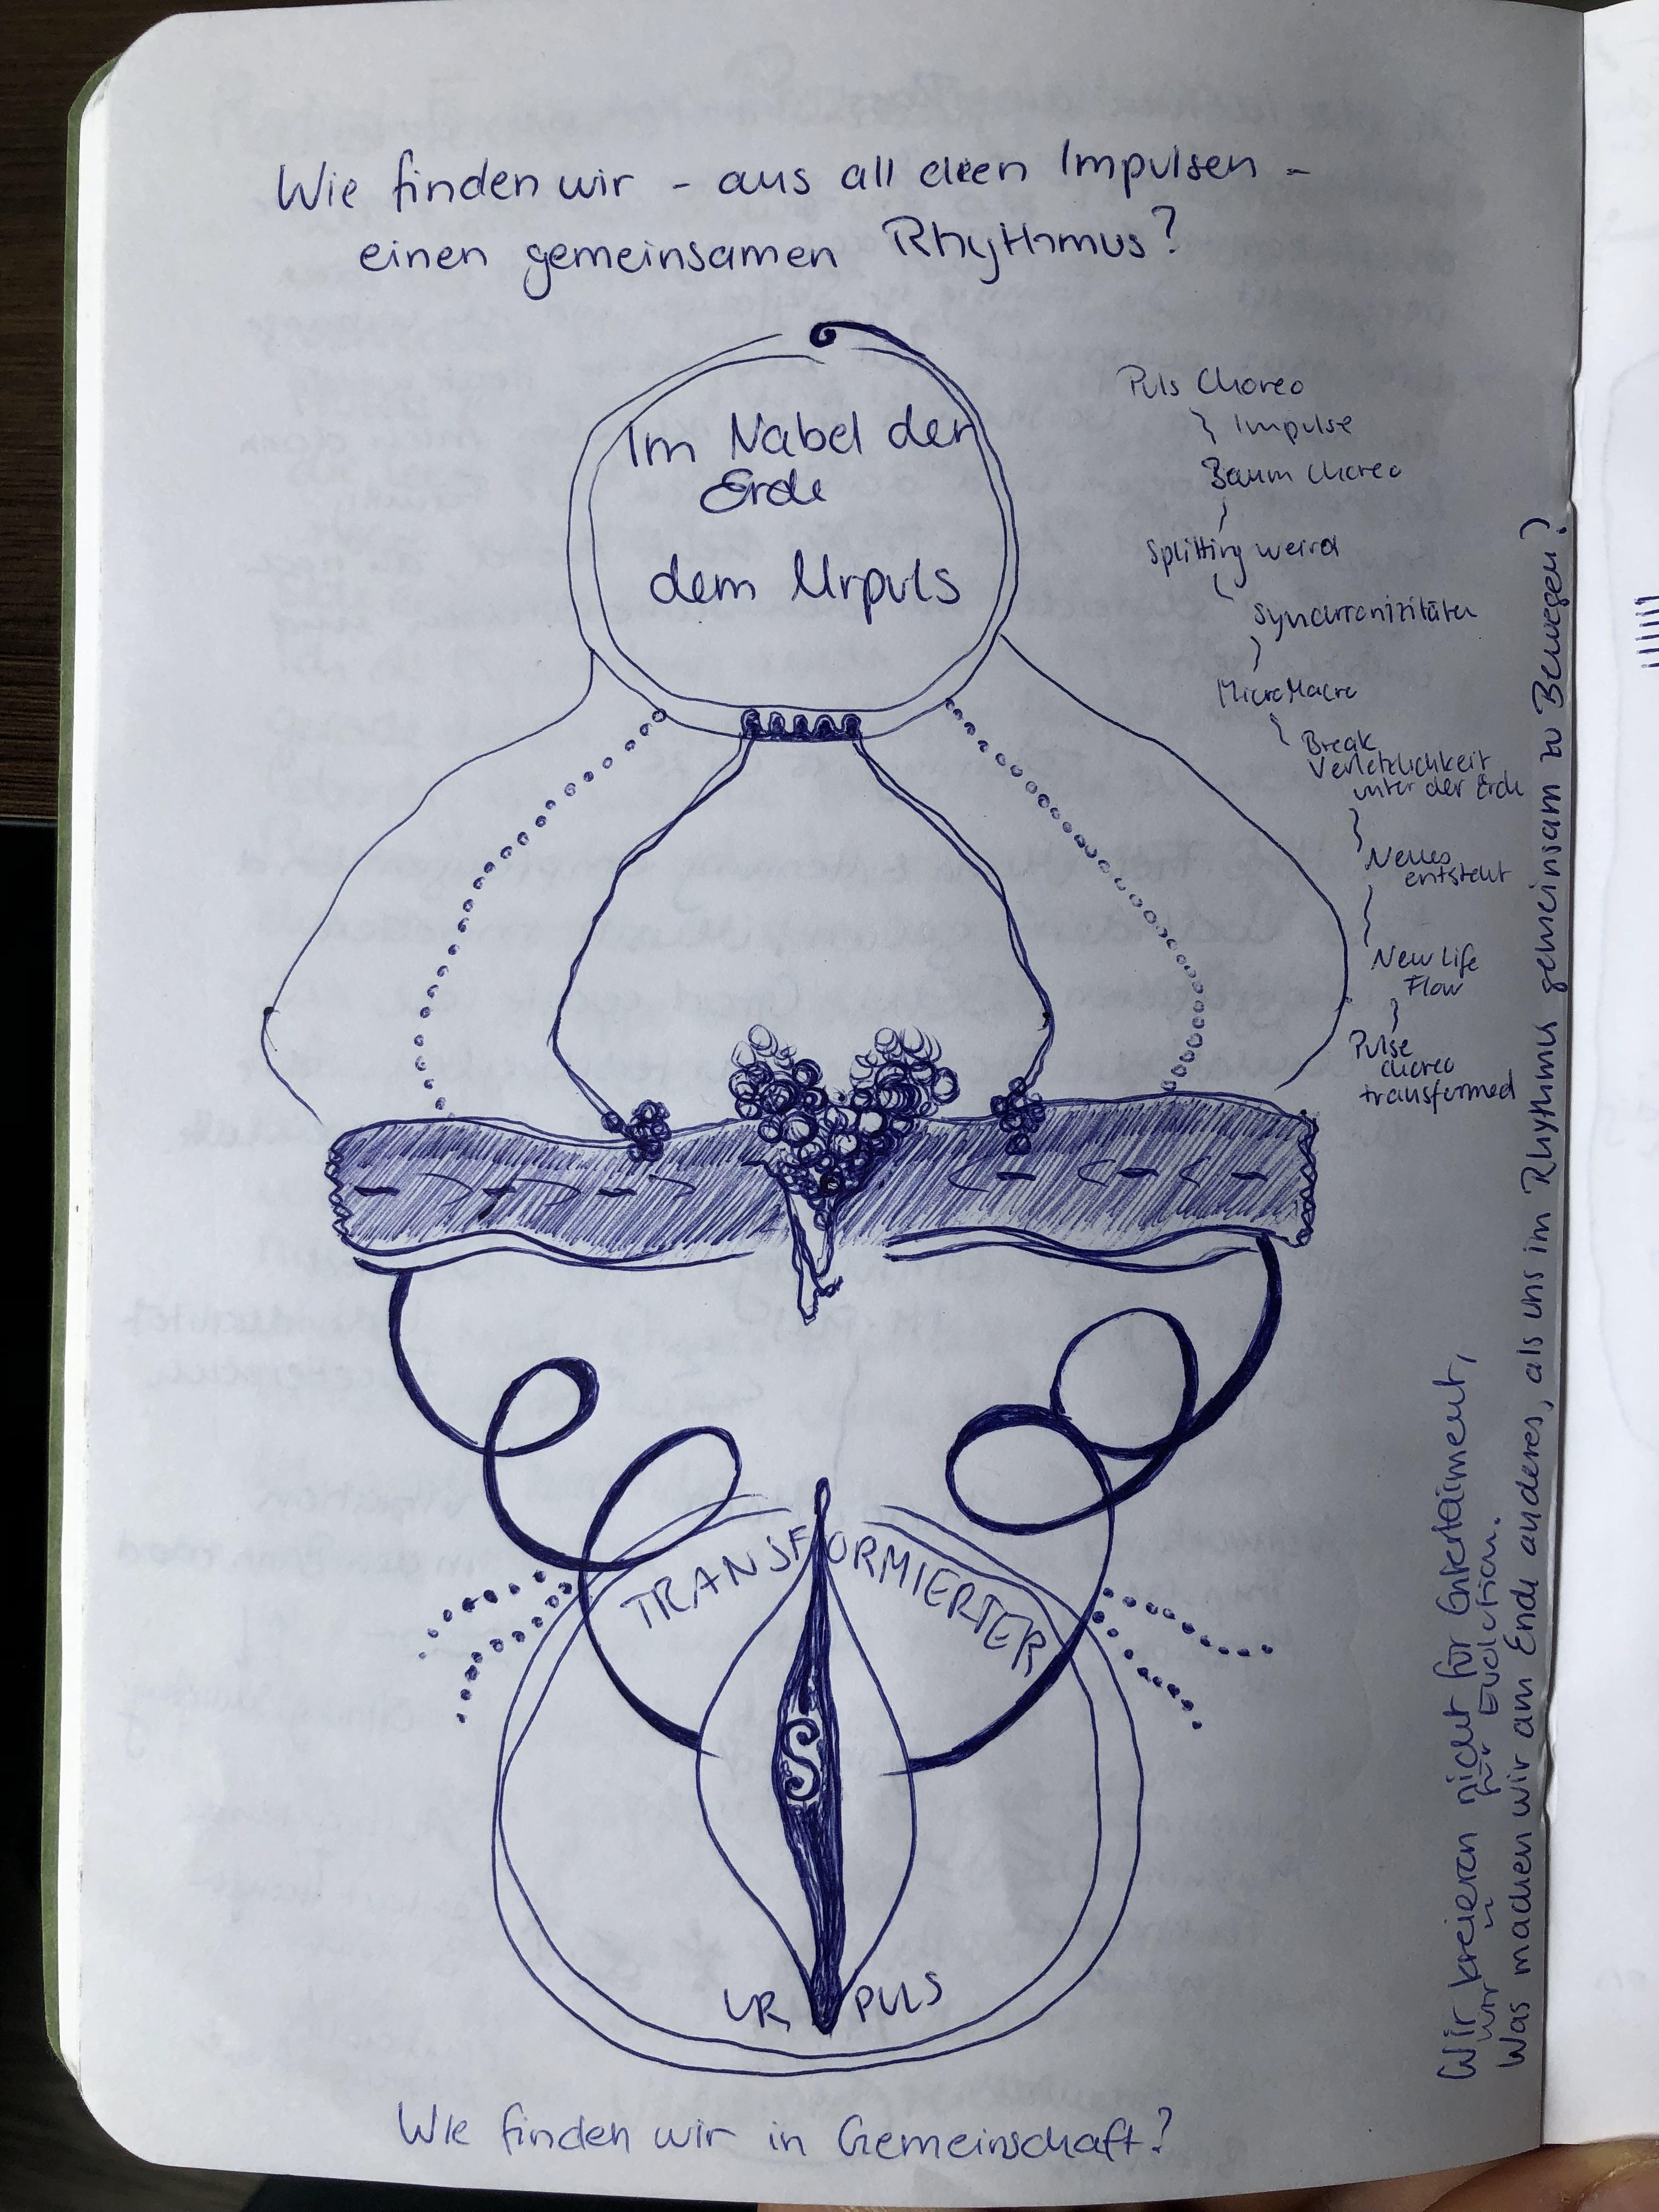 Wie finden wir - aus all den Impulsen -
einen gemeinsamen Rhythmus?
Im Nabel der
Erde
dem Urpuls
Puls Choreo
Impulse
Baum Choreo
Splitting weird
Synchronizitäten
Micro Macro
Break
Verletzlichkeit
unter der Erde
Neues
entsteht
New Life
Flow
Pulse
choreo
transformed
TRANSFORMIERTER
S
UR PULS
Wie finden wir in Gemeinschaft?
Wir kreieren nicht für Entertaiment,
wir für Evolution.
Was machen wir am Ende anderes, als uns im Rhythmus gemeinsam zu Bewegen?